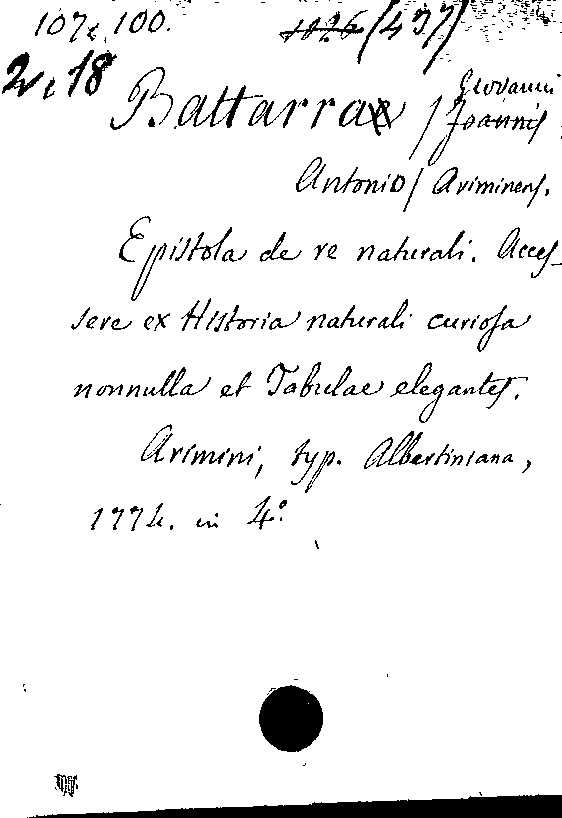 107, 100. 1026 (437)
2, 18
Battarra / Giovanni
Joannis
Antonio / Ariminens.
Epistola de re naturali. Acces-
sere ex Historia naturali curiosa
nonnulla et Tabulae elegantes.
Arimini, typ. Albertiniana,
1774. in 4.º